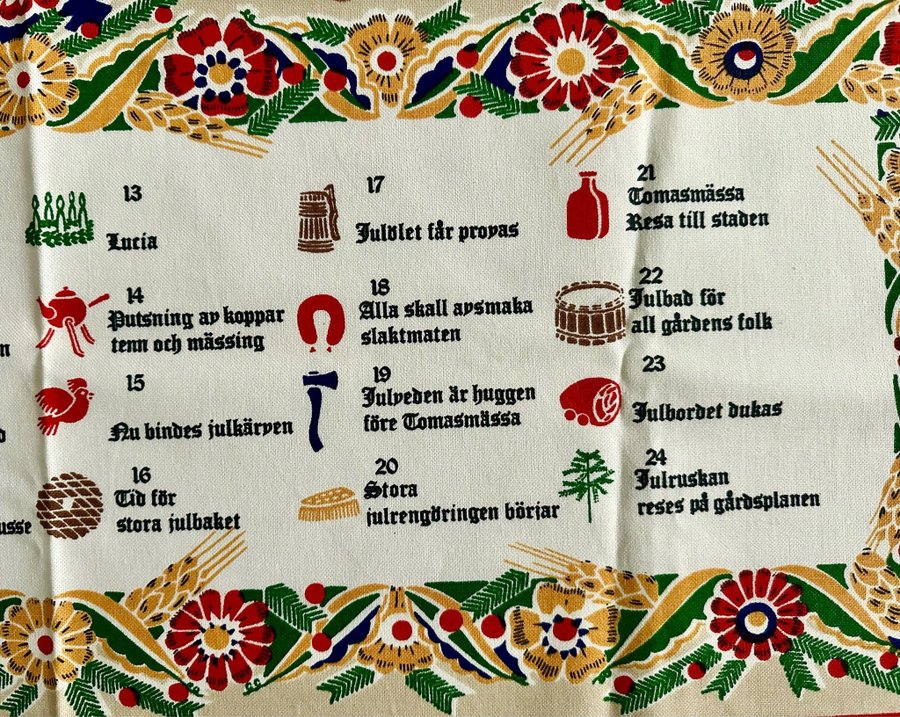 n
d
usse
13
Lucia
14
Putsning av koppar
tenn och mässing
15
Nu bindes julkärven
16
Tid för
stora julbaket
17
Julölet får provas
18
Alla skall avsmaka
slaktmaten
19
Julveden är huggen
före Tomasmässa
20
Stora
julrengöringen börjar
21
Tomasmässa
Resa till staden
22
Julbad för
all gårdens folk
23
Julbordet dukas
24
Julruskan
reses på gårdsplanen